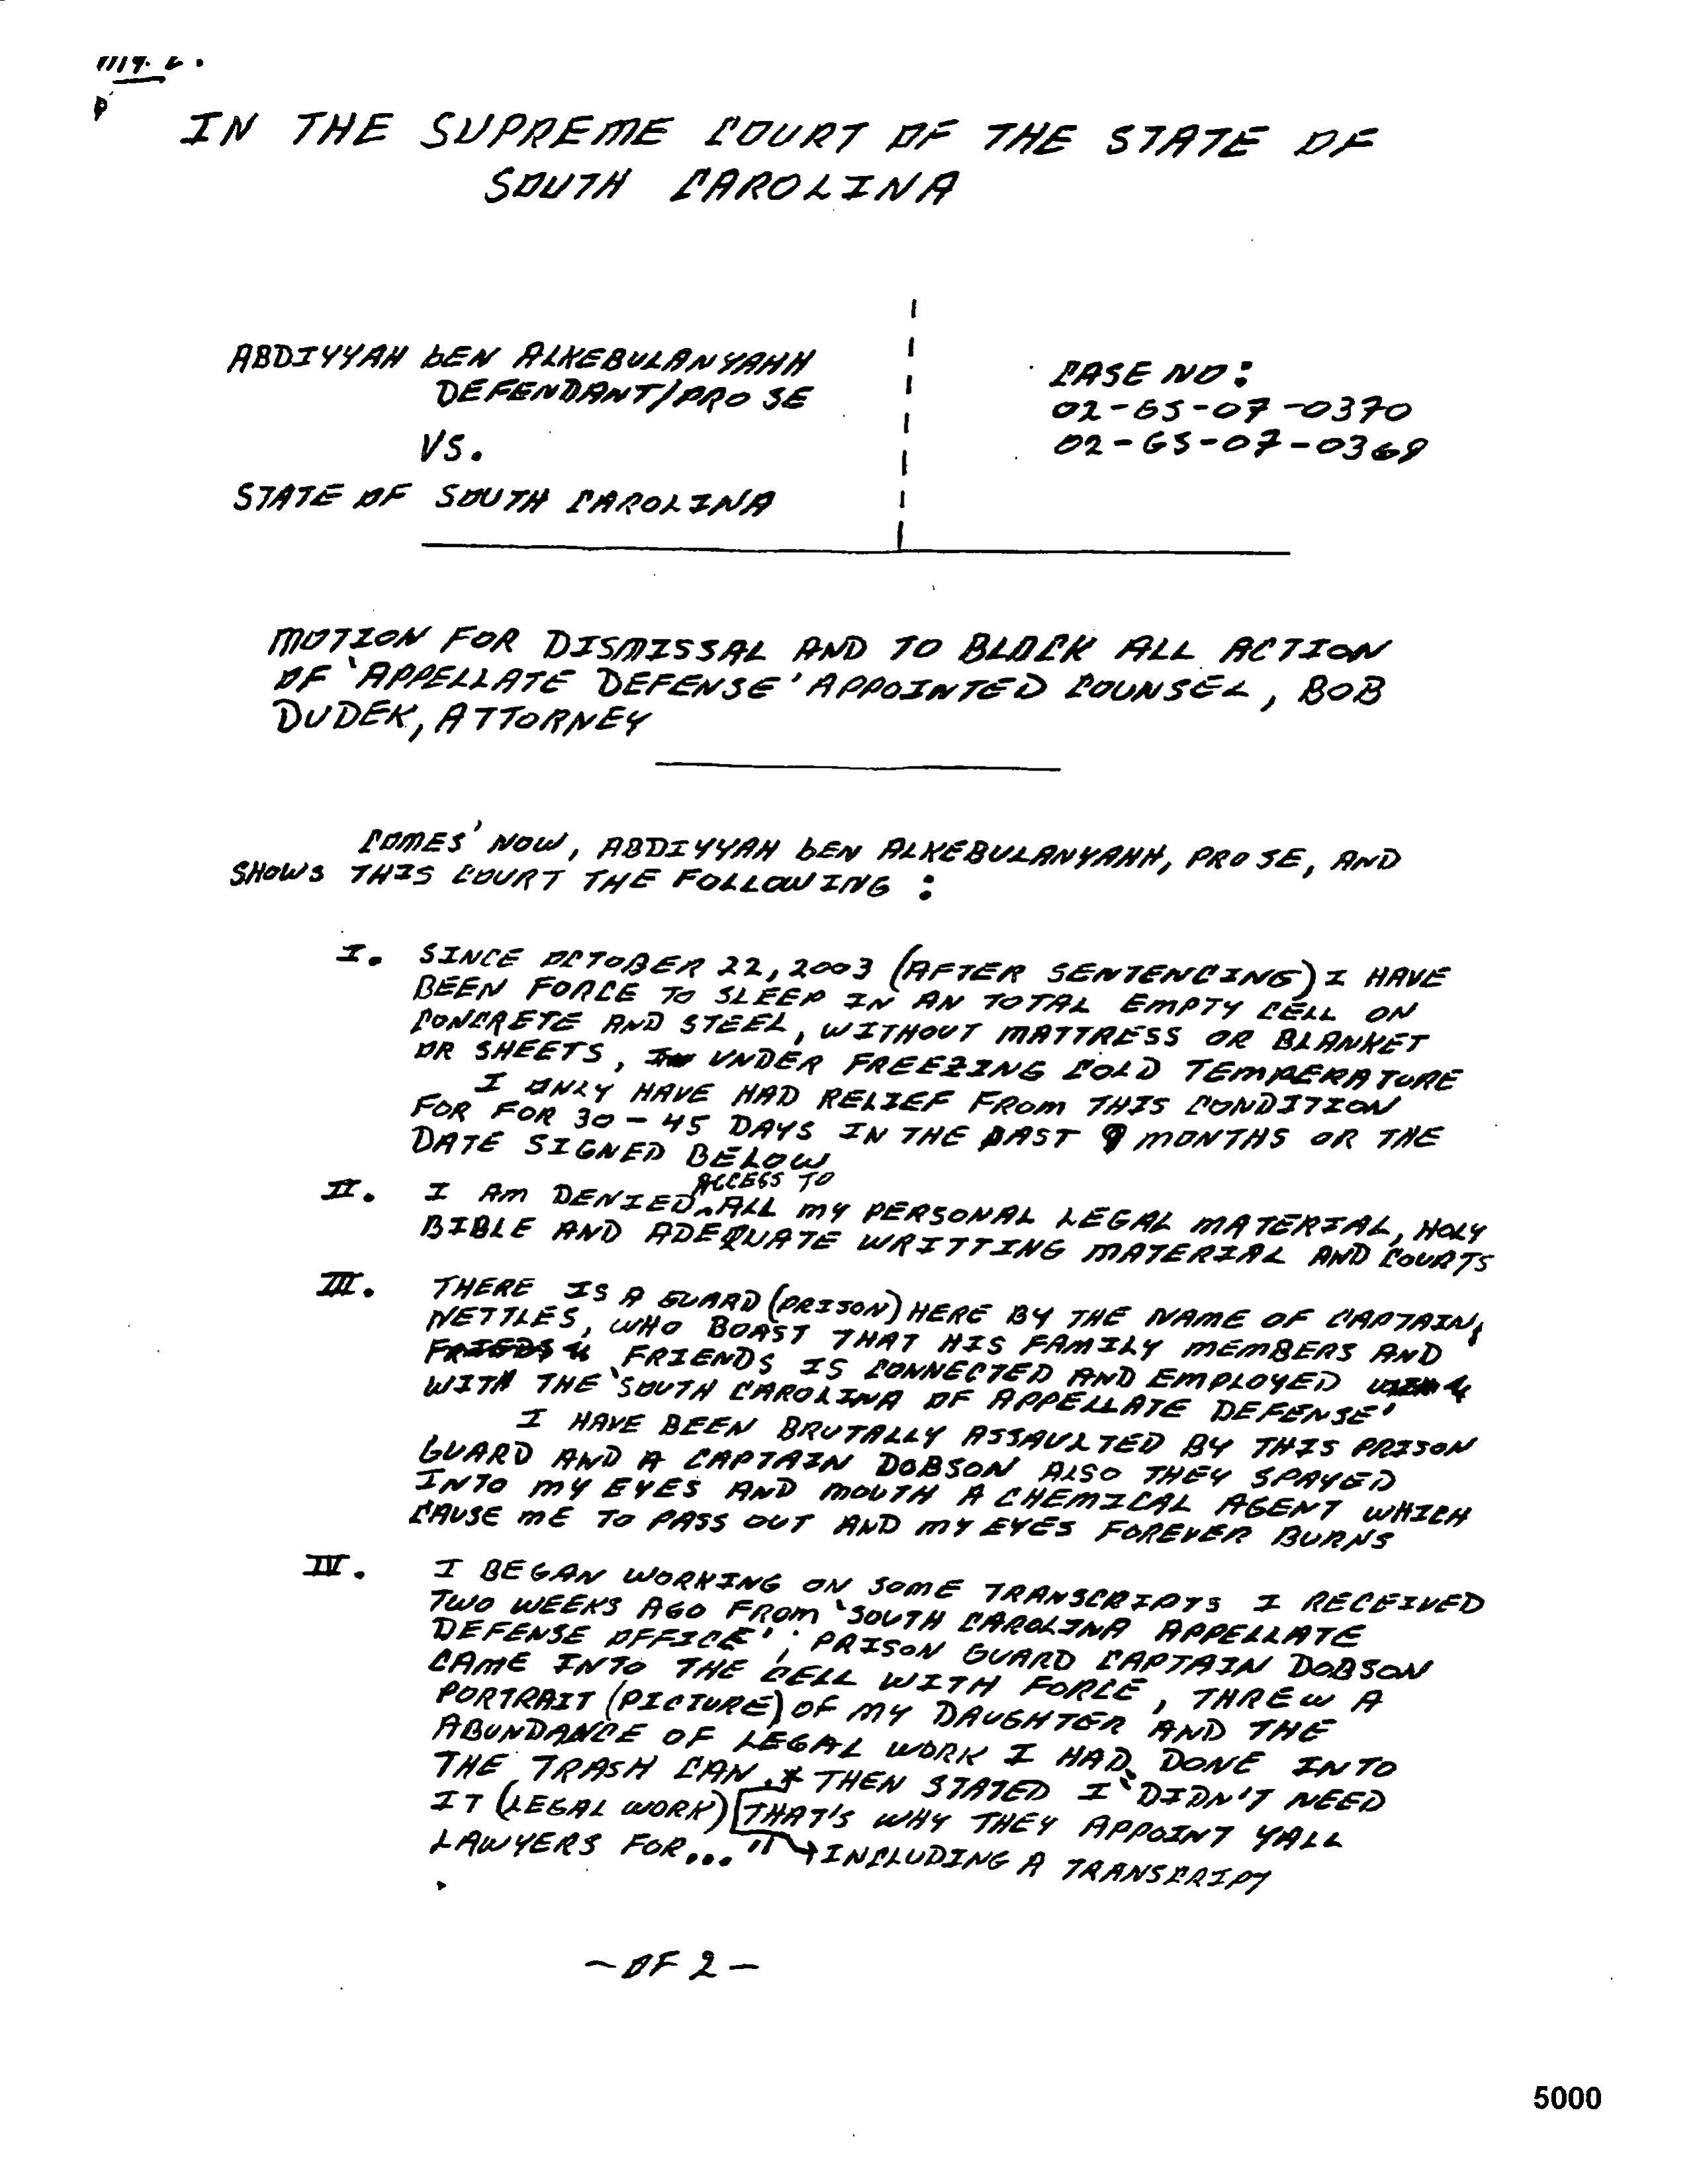 IN THE SUPREME COURT OF THE STATE OF
SOUTH CAROLINA
ABDIYYAH bEN ALKEBULANYAHH
DEFENDANT/PRO SE
VS.
STATE OF SOUTH CAROLINA
CASE NO:
02-GS-07-0370
02-GS-07-0369
MOTION FOR DISMISSAL AND TO BLOCK ALL ACTION
OF 'APPELLATE DEFENSE' APPOINTED COUNSEL, BOB
DUDEK, ATTORNEY
COMES' NOW, ABDIYYAH bEN ALKEBULANYAHH, PRO SE, AND
SHOWS THIS COURT THE FOLLOWING:
I. SINCE OCTOBER 22, 2003 (AFTER SENTENCING) I HAVE
BEEN FORCE TO SLEEP IN AN TOTAL EMPTY CELL ON
CONCRETE AND STEEL, WITHOUT MATTRESS OR BLANKET
OR SHEETS, UNDER FREEZING COLD TEMPERATURE
I ONLY HAVE HAD RELIEF FROM THIS CONDITION
FOR FOR 30-45 DAYS IN THE PAST 9 MONTHS OR THE
DATE SIGNED BELOW
II. I AM DENIED ACCESS TO ALL MY PERSONAL LEGAL MATERIAL, HOLY
BIBLE AND ADEQUATE WRITTING MATERIAL AND COURTS
III. THERE IS A GUARD (PRISON) HERE BY THE NAME OF CAPTAIN,
NETTLES, WHO BOAST THAT HIS FAMILY MEMBERS AND
FRIENDS IS CONNECTED AND EMPLOYED
WITH THE 'SOUTH CAROLINA OF APPELLATE DEFENSE'
I HAVE BEEN BRUTALLY ASSAULTED BY THIS PRISON
GUARD AND A CAPTAIN DOBSON ALSO THEY SPAYED
INTO MY EYES AND MOUTH A CHEMICAL AGENT WHICH
CAUSE ME TO PASS OUT AND MY EYES FOREVER BURNS
IV. I BEGAN WORKING ON SOME TRANSCRIPTS I RECEIVED
TWO WEEKS AGO FROM 'SOUTH CAROLINA APPELLATE
DEFENSE OFFICE'; PRISON GUARD CAPTAIN DOBSON
CAME INTO THE CELL WITH FORCE, THREW A
PORTRAIT (PICTURE) OF MY DAUGHTER AND THE
ABUNDANCE OF LEGAL WORK I HAD DONE INTO
THE TRASH CAN.* THEN STATED I "DIDN'T NEED
IT (LEGAL WORK) THAT'S WHY THEY APPOINT YALL
LAWYERS FOR..." INCLUDING A TRANSCRIPT
-OF 2-
5000